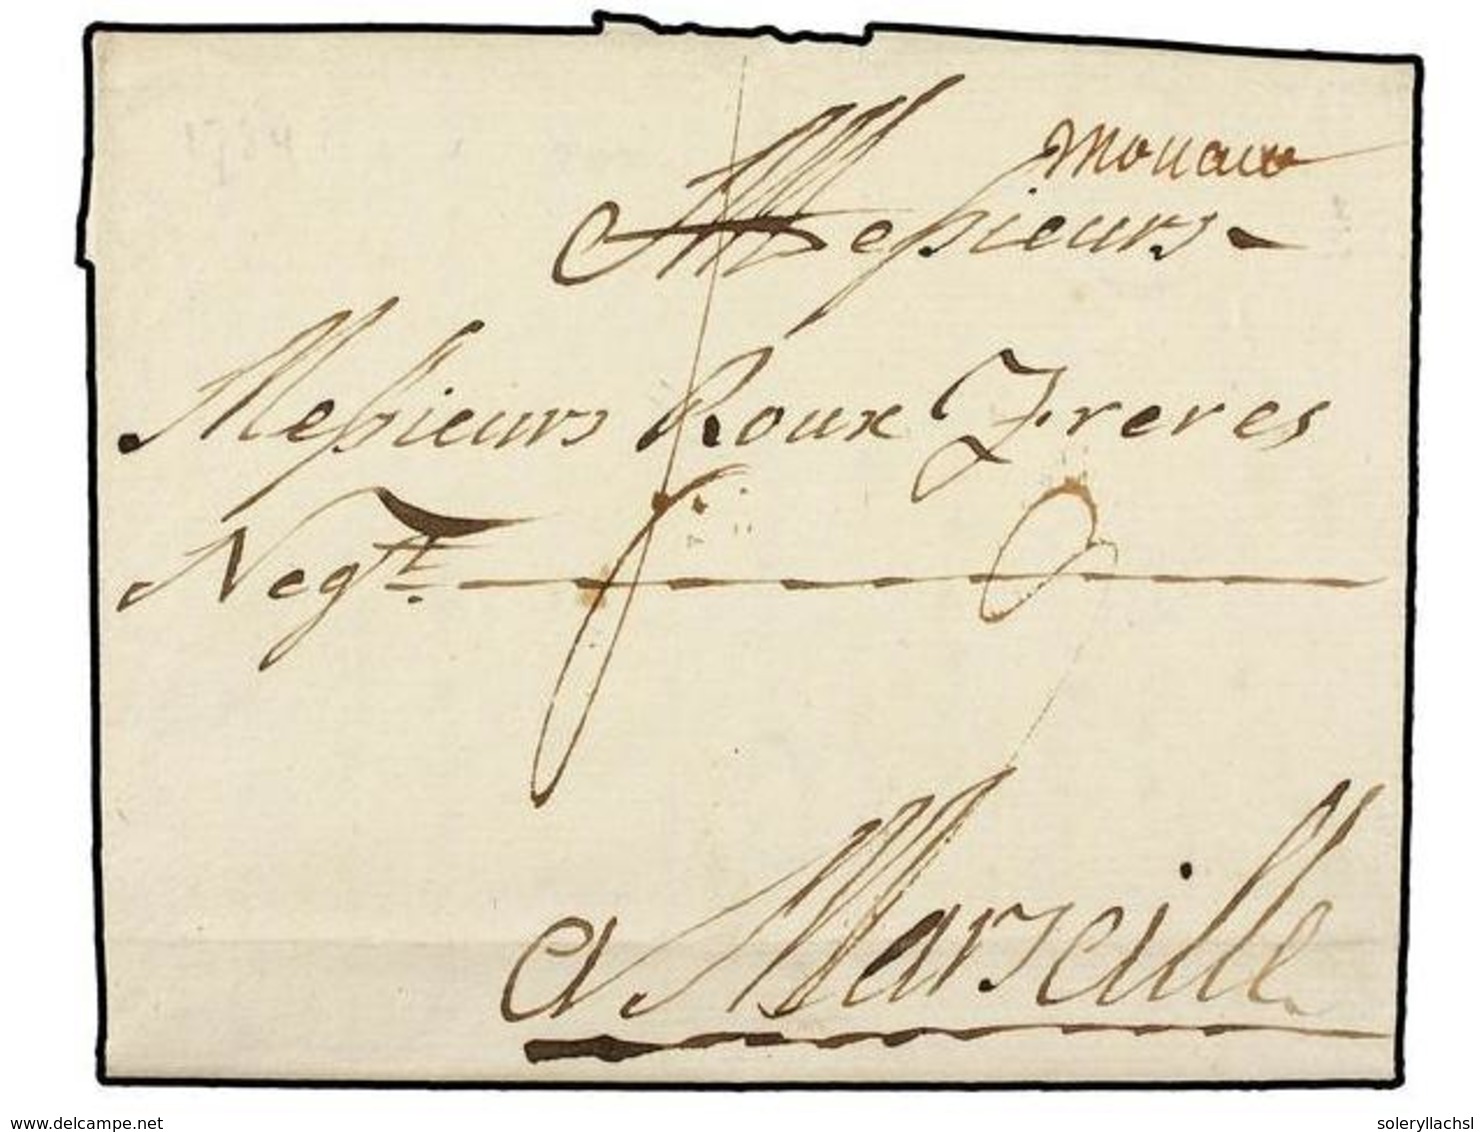 Monaco
Messieurs
Messieurs Roux Freres
Negts.
a Marseille
www.delcampe.net
soleryllachsl